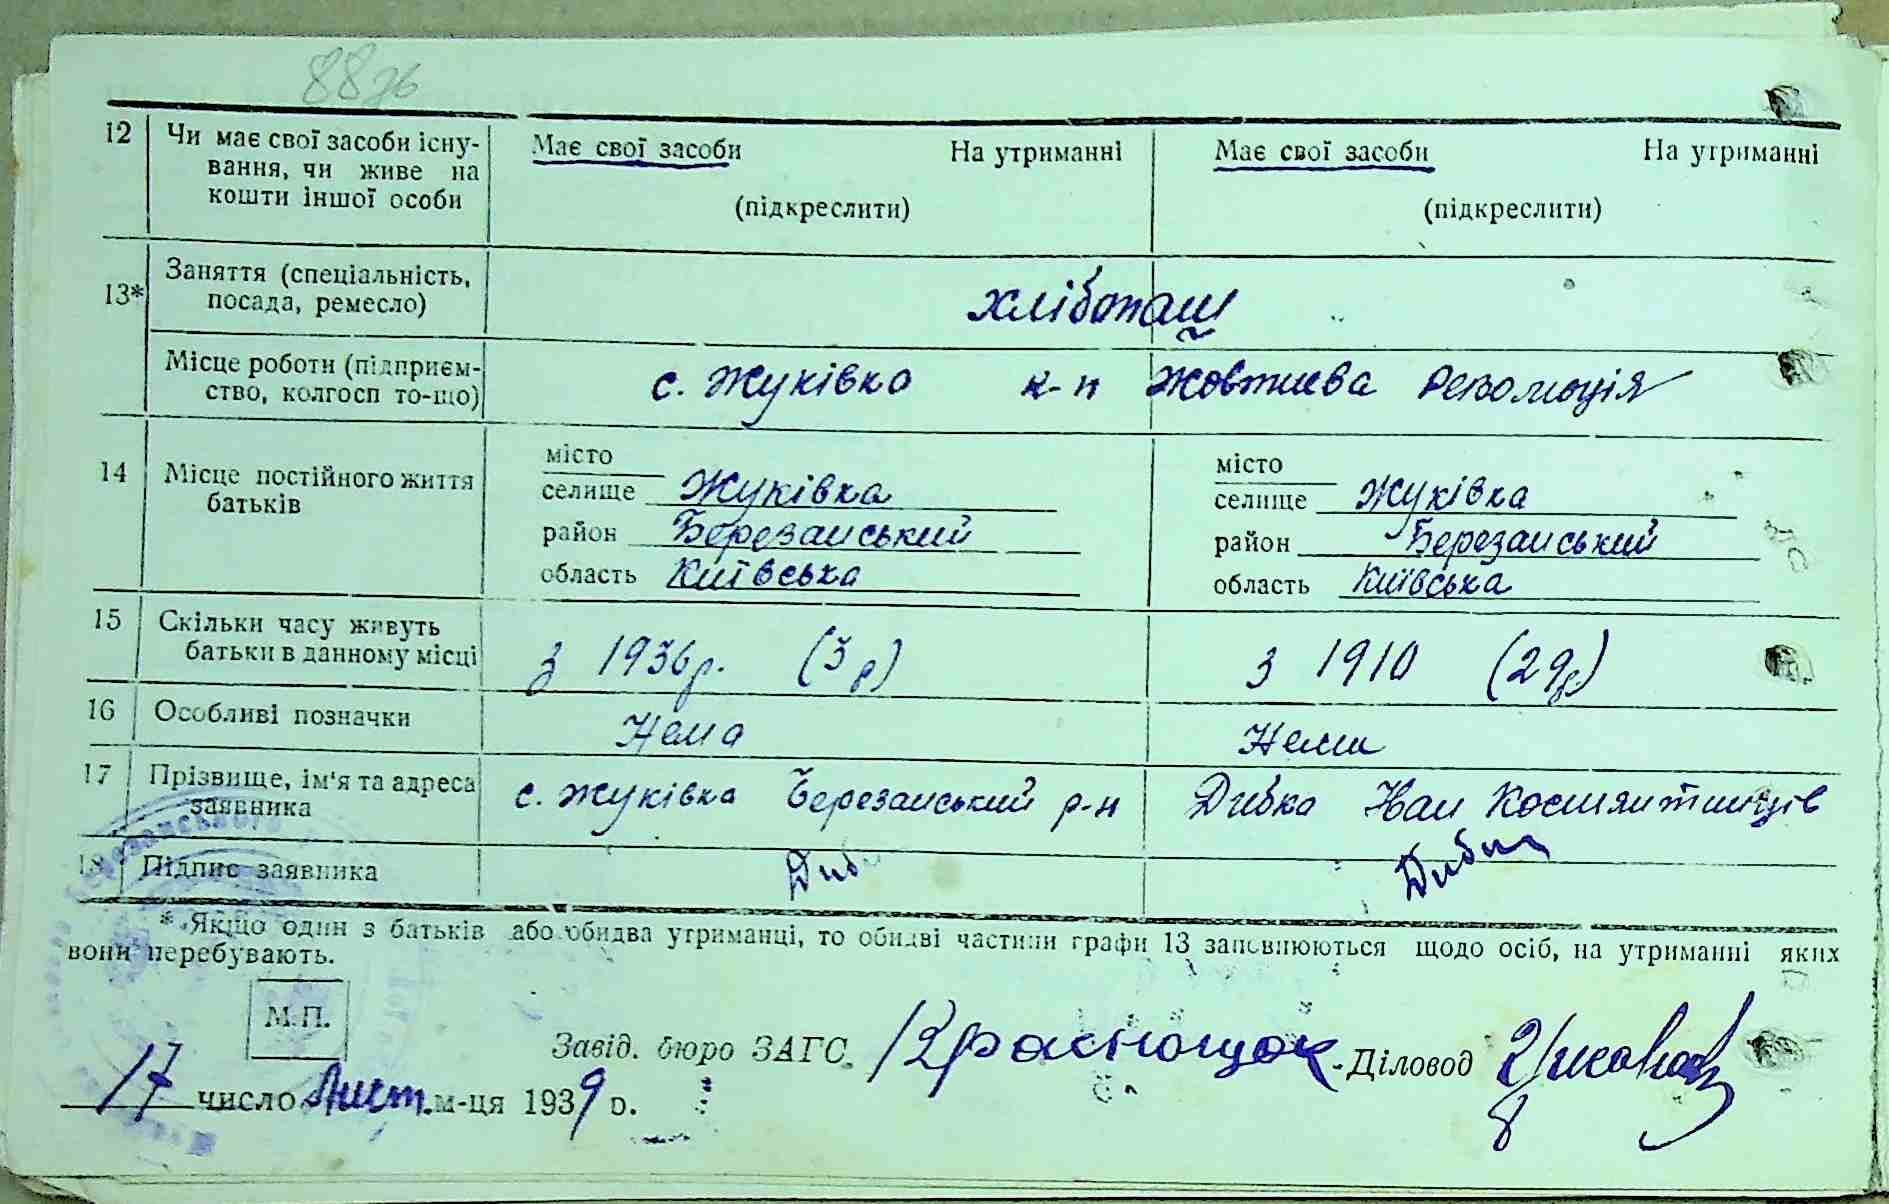 88зв
12 Чи має свої засоби існу- Має свої засоби На утриманні Має свої засоби На утриманні
вання, чи живе на
кошти іншої особи (підкреслити) (підкреслити)
13* Заняття (спеціальність,
посада, ремесло) хлібопаш
Місце роботи (підприєм-
ство, колгосп то-що) с. Жуківка к-п Жовтнева Революція
14 Місце постійного життя
батьків
місто місто
селище Жуківка селище Жуківка
район Березанський район Березанський
область Київська область Київська
15 Скільки часу живуть
батьки в данному місці з 1936 р. (3 р) з 1910 (29р)
16 Особливі позначки Нема Нема
17 Прізвище, ім'я та адреса
заявника с. Жуківка Березанський р-н Дибка Іван
18 Підпис заявника
* Якщо один з батьків або обидва утриманці, то обидві частини графи 13 заповнюються щодо осіб, на утриманні яких
вони перебувають.
М.П.
Завід. бюро ЗАГС Діловод
17 число Лист. м-ця 1939 р.